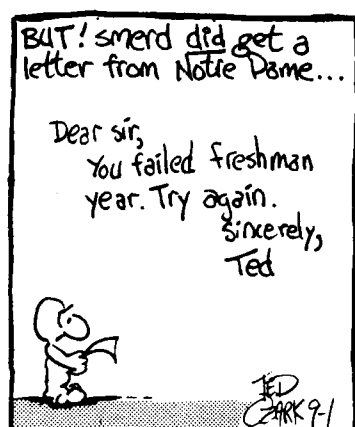 BUT! smerd did get a
letter from Notre Dame...
Dear sir,
You failed freshman
year. Try again.
Sincerely,
Ted
TED
OZARK 9-1